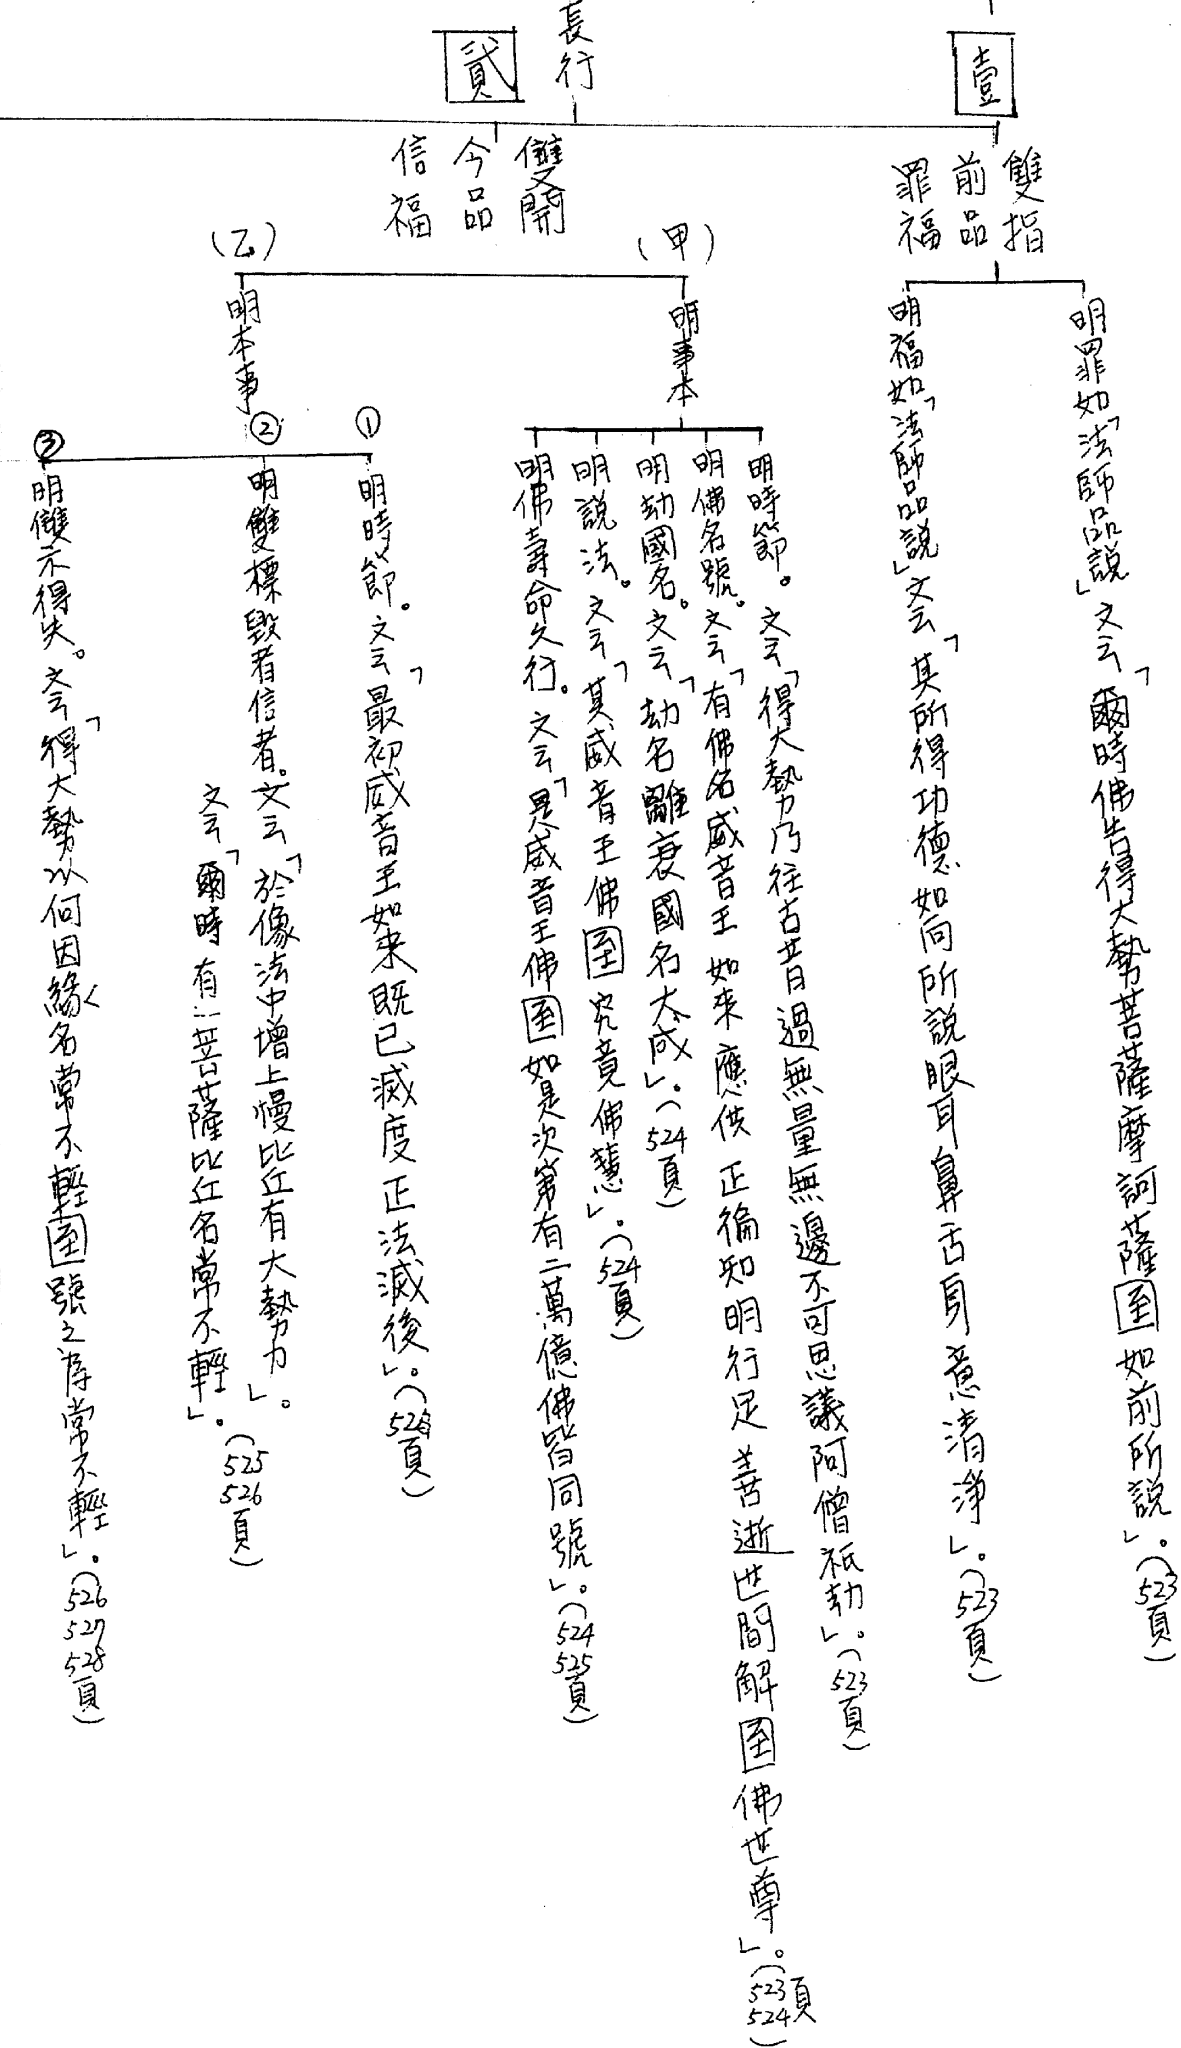 長行
壹
雙指
前品
罪福
明罪如「法師品說」文云「爾時佛告得大勢菩薩摩訶薩至如前所說」。(523頁)
明福如「法師品說」文云「其所得功德如向所說眼耳鼻舌身意清淨」。(523頁)
貳
雙開
今品
信福
(甲)
明事本
明時節。文云「得大勢乃往古昔過無量無邊不可思議阿僧祇劫」。(523頁)
明佛名號。文云「有佛名威音王如來應供正徧知明行足善逝世間解至佛世尊」。(523 524頁)
明劫國名。文云「劫名離衰國名大成」。(524頁)
明說法。文云「其威音王佛至究竟佛慧」。(524頁)
明佛壽命久行。文云「是威音王佛至如是次第有二萬億佛皆同號」。(524 525頁)
(乙)
明本事
① 明時節。文云「最初威音王如來既已滅度正法滅後」。(525頁)
② 明雙標毀者信者。文云「於像法中增上慢比丘有大勢力」。
文云「爾時有一菩薩比丘名常不輕」。(525 526頁)
③ 明雙示得失。文云「得大勢以何因緣名常不輕至號之為常不輕」。(526 527 528頁)